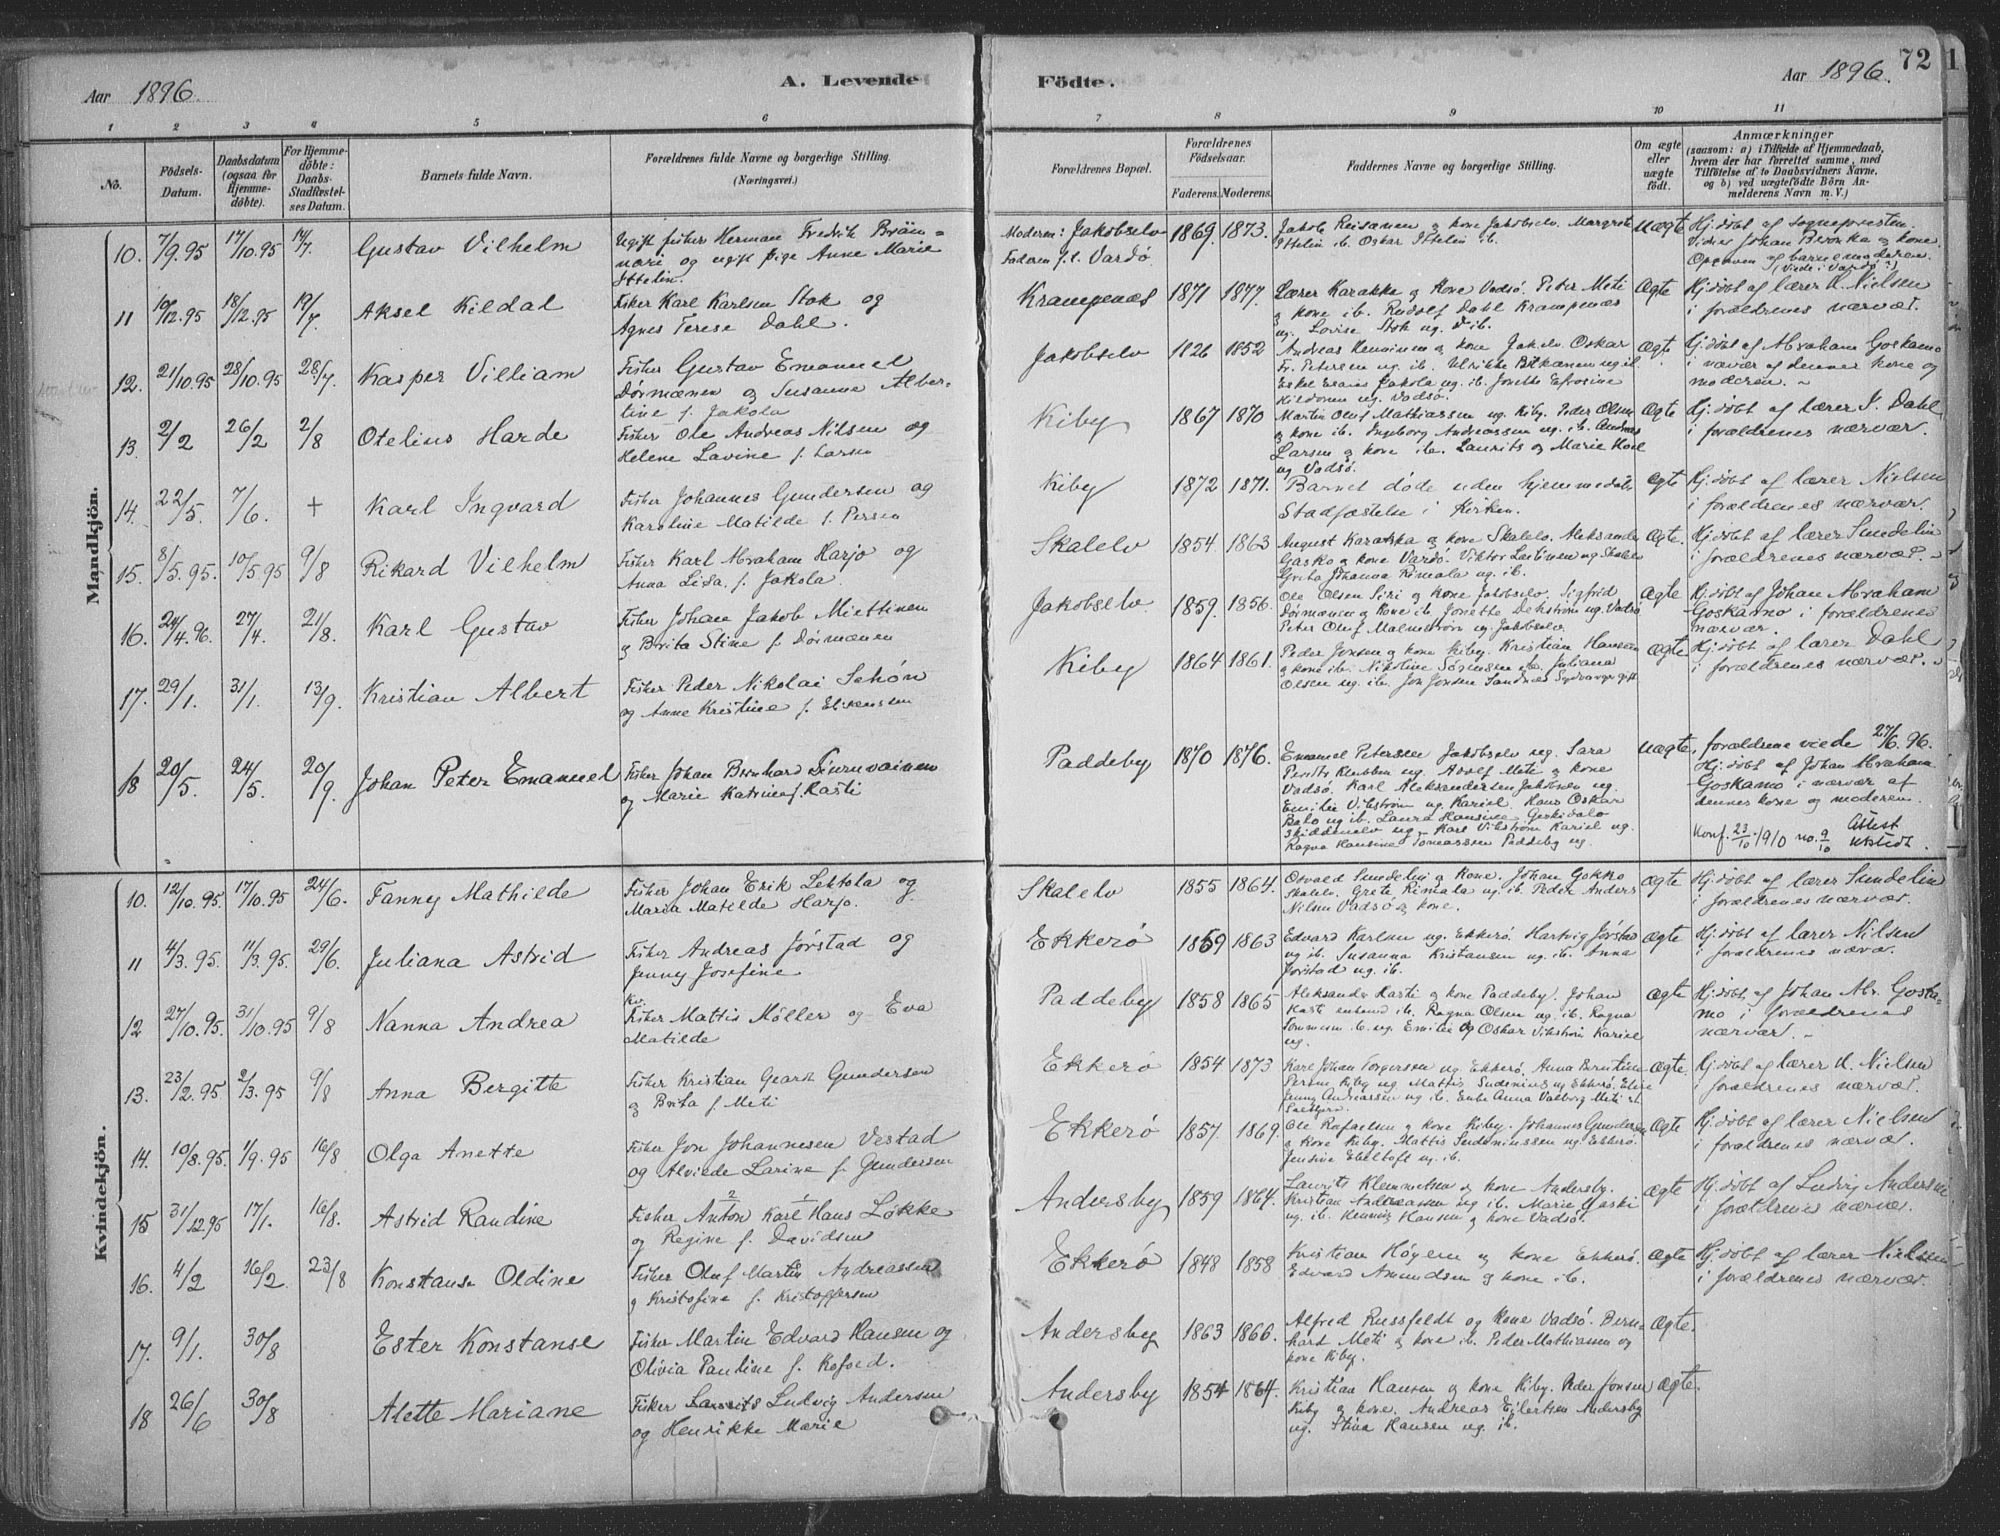 Aar 1896.
A. Levende
Födte.
Aar 1896.
72
1 2 3 4 5 6 7 8 9 10 11
No.
Födsels-Datum.
Daabsdatum (ogsaa for Hjemme-döbte).
For Hjemme-döbte: Daabs-Stadfæstelses Datum.
Barnets fulde Navn.
Forældrenes fulde Navne og borgerlige Stilling. (Næringsvei.)
Forældrenes Bopæl.
Forældrenes Födselsaar.
Faderens. Moderens.
Faddernes Navne og borgerlige Stilling.
Om ægte eller uægte födt.
Anmærkninger
(saasom: a) i Tilfælde af Hjemmedaab, hvem der har forrettet samme, med Tilföielse af to Daabsvidners Navne, og b) ved uægtefödte Börn Anmelderens Navn m. V.)
Mandkjön.
10. 7/9.95 17/10.95 14/7. Gustav Vilhelm
Ugift fisker Herman Fredrik Brän-
näri og ugift pige Anne Marie
Ittelin.
Moderen: Jakobselv
Faderen f. t. Vardö
1869. 1873.
Jakob Reisanen og kone Jakobselv. Margrete
Ittelin ib. Oskar Ittelin ib.
uægte
Hj. döbt af sognepresten.
Vidner Johan Beronka og kone.
Opgaven af barnemoderen.
(Viede i Vardö?)
11 10/12.95 18/12.95 19/7. Aksel Kildal
Fisker Karl Karlsen Stok og
Agnes Terese Dahl.
Krampenæs 1871 1877.
Lærer Karakka og Kone Vadsö. Peter Meti
og kone ib. Rudolf Dahl Krampenæs
ug. Lovise Stok ug. ib.
Ægte
Hj. döbt af lærer U. Nielsen
i forældrenes nærvær.
12. 21/10.95 28/10.95 28/7. Kasper Villiam
Fisker Gustav Emanuel
Dörmænen og Susanna Alber-
tine f. Jakola
Jakobselv 1826 1852
Andreas Henninen og kone Jakelv. Oskar
Fr. Petersen ug. ib. Ulrikke Pitkænen ug ib.
ug. ib. Jonette Efrosine
ug. Vadsö.
Ægte
Hj. döbt af Abraham Goskamo
i nærvær af dennes kone og
moderen.
13. 2/2 26/2 2/8 Otelius Harde
Fisker Ole Andreas Nilsen og
Helene Lavine f. Larsen
Kiby 1867 1870
Martin Oluf Mathiassen ug. Kiby. Peder Olsen
og kone ib. Ingeborg Andreassen ug. ib. Andreas
Larsen og kone ib. Laurits og Marie
ug Vadsö.
Ægte
Hj. döbt af lærer I. Dahl
i forældrenes nærvær.
14. 22/5. 7/6. + Karl Ingvard
Fisker Johannes Gundersen og
Karoline Matilde f. Persen
Kiby 1872 1871.
Barnet döde uden hjemmedaabs
Stadfæstelse i Kirken.
Ægte
Hj. döbt af lærer Nielsen
i forældrenes nærvær.
15. 8/5.95. 10/5.95 9/8 Rikard Vilhelm
Fisker Karl Abraham Harjo og
Anna Lisa f. Jakola.
Skalelv 1854. 1863
August Karakka og kone Skalelv. Aleksander
Gasko og kone Vardö. Viktor Lantinen ug Skalelv
Greta Johanna Rimala ug. ib.
Ægte.
Hj. döbt af lærer Sundelin
i forældrenes nærvær.
16. 24/4.96. 27/4. 21/8. Karl Gustav
Fisker Johan Jakob Miettinen
og Brita Stine f. Dörmænen
Jakobselv. 1859. 1856.
Ole Olsen Siri og kone Jakobselv. Sigfrid
Dörmænen og Kone ib. Jonette Dekström ug. Vadsö
Peter Oluf Malmström ug. Jakobselv.
Ægte
Hj. döbt af Johan Abraham
Goskamo i forældrenes
nærvær.
17. 29/1. 31/1. 13/9. Kristian Albert
Fisker Peder Nikolai Schön
og Anne Kristine f. Eliseussen
Kiby 1864 1861.
Peder Jonsen og kone Kiby. Kristian Hansen
og kone ib. Nikoline Sörgensen ib. Juliana
Olsen ug. ib. Jon Jonsen Sandnæs Sydvaranger gift
Ægte
Hj. döbt af lærer Dahl
i forældrenes nærvær.
18 20/5. 24/5. 20/9. Johan Peter Emanuel
Fisker Johan Bernhard Siuruvainen
og Marie Katrine f. Kasti
Paddeby 1870 1876.
Emanuel Petersen Jakobselv ug. Sara
Pentts Klubben ug. Adolf Meti og kone
Vadsö. Karl Aleksandersen Jakobselv ug.
Emilie Vikström ug. Kariel. Hans Oskar
Balo ug ib. Laura Hansine
Skiddenelv ug. Karl Vikström Kariel ug.
Ragna Hansine Tomassen Paddeby ug.
uægte,
forældrene viede 27/6.96.
Hj. döbt af Johan Abraham
Goskamo i nærvær af
dennes kone og moderen.
Konf. 23/10 1910 no. 9/10 Attest utstedt.
Kvindekjön.
10. 12/10.95. 17/10.95 24/6. Fanny Mathilde
Fisker Johan Erik Lehtola og
Maria Matilde Harjo.
Skalelv 1855 1864.
Osvald Sundelin og Kone. Johan Gokko
Skalelv. Grete Rimala ug. ib. Peder Anders
Nilsen Vadsö og kone.
Ægte
Hj. döbt af lærer Sundelin
i forældrenes nærvær.
11 4/3.95. 11/3.95. 29/6. Juliana Astrid
Fisker Andreas Jörstad og
Jenny Josefine
Ekkerö 1859 1863
Edvard Karlsen ug. Ekkerö. Hartvig Jörstad
ug ib. Susanna Kristiansen ug. ib. Anna
Jörstad ug. ib.
Ægte
Hj. döbt af lærer Nielsen
i forældrenes nærvær.
12 27/10.95. 31/10.95 9/8 Nanna Andrea
Kv.
Fisker Mattis Möller og Eva
Matilde
Paddeby 1858 1865
Aleksander Kasti og kone Paddeby. Johan
Kasti enkemd ib. Ragna Olsen ug. ib. Ragna
ib. ug. Emilie og Oskar Vikström Kariel
ug.
Ægte
Hj. döbt af Johan Abr. Goska-
mo i forældrenes
nærvær.
13. 23/2.95 2/3.95 9/8 Anna Bergitte
Fisker Kristian Georg Gundersen
og Brita f. Meti
Ekkerö 1854 1873
Karl Johan Torgersen ug Ekkerö. Anna Berntine
Persen Kiby ug. Mattis ug Ekkerö.
Jenny Andreassen ug ib. Enke Anna Valborg Meti
Ægte.
Hj. döbt af lærer U. Nielsen
i forældrenes nærvær.
14. 10/8.95. 1/9.95 16/8 Olga Anette
Fisker Jon Johannesen Vestad
og Alviede Larine f. Gundersen
Ekkerö 1857. 1869.
Ole Rafaelsen og kone Kiby. Johannes Gundersen
og kone Kiby. Mattis ug. Ekkerö.
Jensine Ebeltoft ug. ib.
Ægte
Hj. döbt af lærer Nielsen
i forældrenes nærvær.
15 31/12.95 17/1. 16/8. Astrid Randine
Fisker Anton Karl Hans Lökke
og Regine f. Davidsen
Andersby 1859 1864.
Laurits Klemmetsen og kone Andersby.
Kristian Andreassen ug ib. Marie Gaski
ug. ib. Henning Hansen og kone Vadsö.
Ægte
Hj. döbt af Ludvig Andersen
i forældrenes nærvær.
16. 4/2 16/2 23/8 Konstanse Oldine
Fisker Oluf Martin Andreassen
og Kristofine f. Kristoffersen
Ekkerö 1848 1858
Kristian Högem og kone Ekkerö.
Edvard Amundsen og kone ib.
Ægte
Hj. döbt af lærer Nielsen
i forældrenes nærvær.
17. 9/1. 30/8 Ester Konstanse
Fisker Martin Edvard Hansen og
Olivia Pauline f. Kofoed.
Andersby 1863 1866.
Alfred Russfeldt og kone Vadsö. Bern-
hart Meti og kone ib. Peder Mathiassen og
kone Kiby.
Ægte.
18 26/6 30/8 Alette Mariane
Fisker Laurits Ludvig Andersen
og Henrikke Marie
Andersby 1854 1864.
Kristian Hansen og kone Kiby. Peder Jonsen
Kiby og kone. Andreas Eilertsen Andersby
ug. Stina Hansen ug. ib.
Ægte.